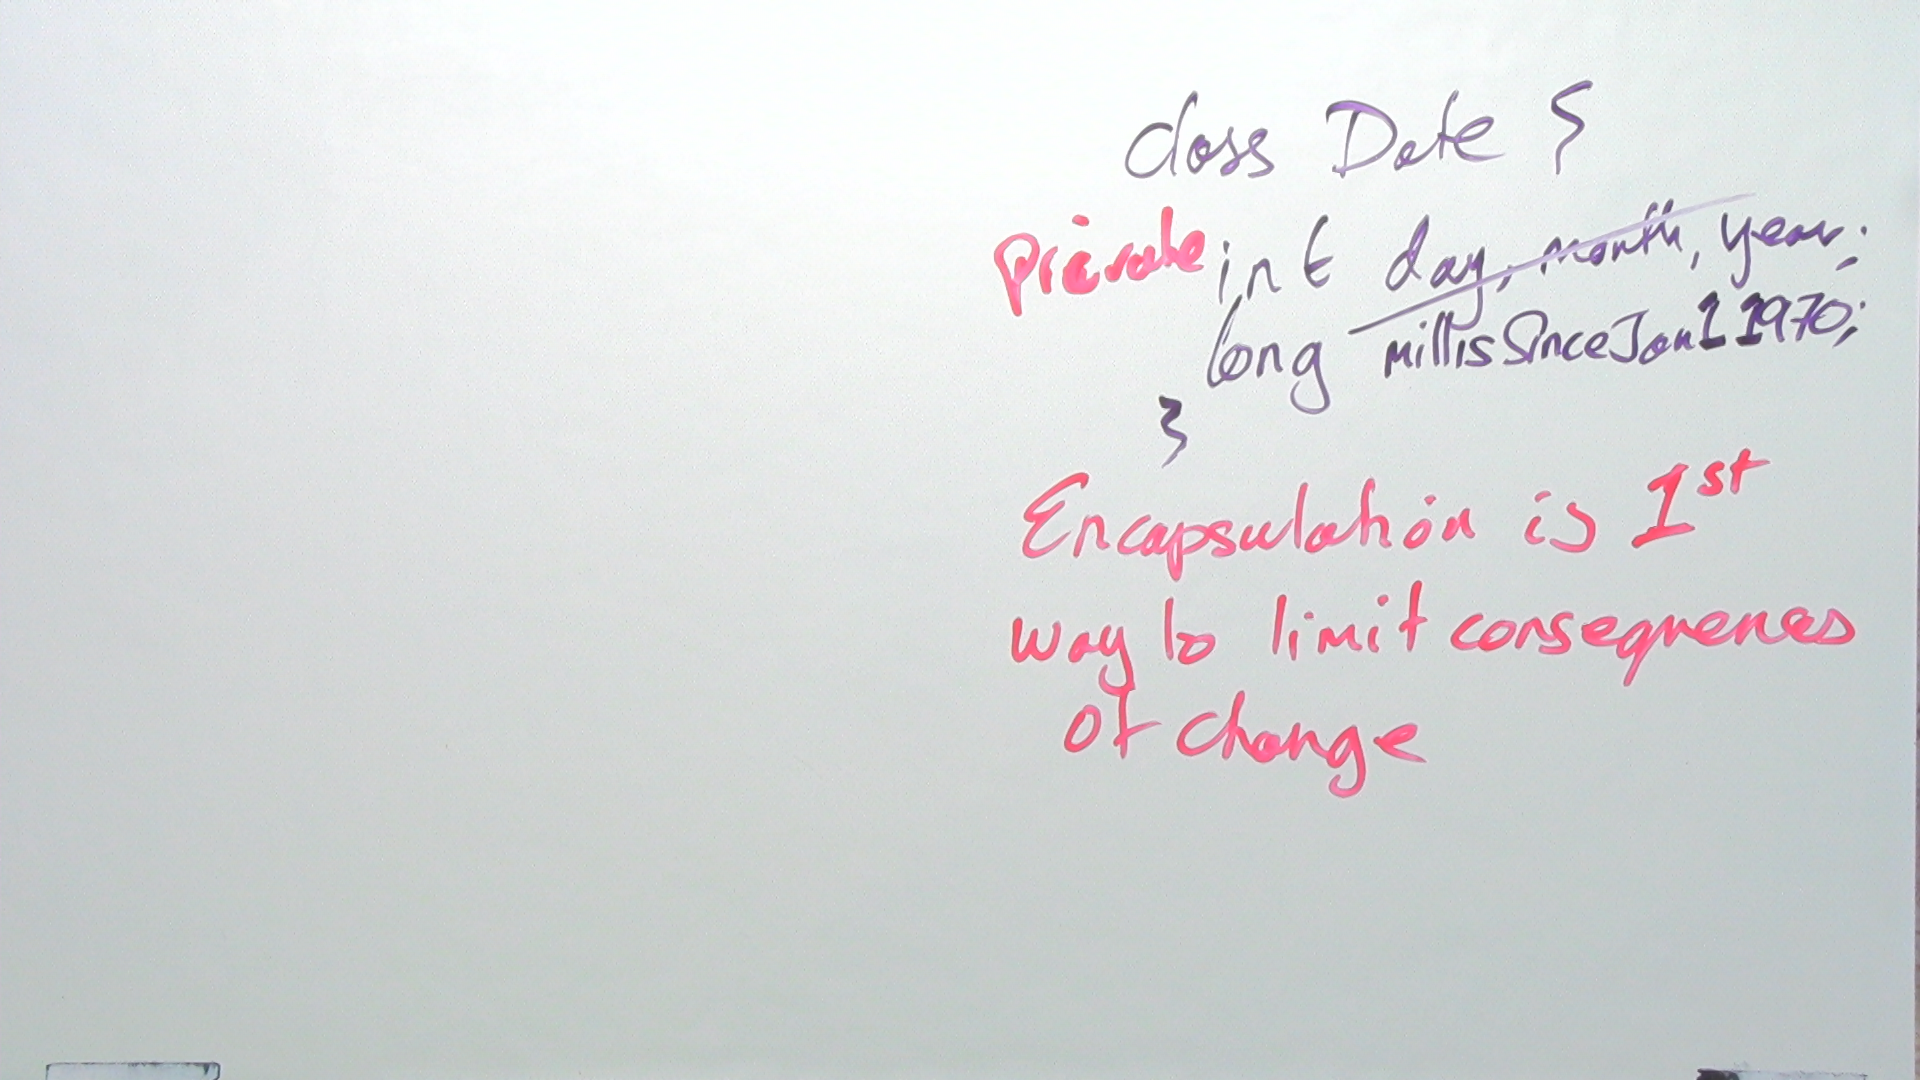 class Date {
private int day, month, year;
long millisSinceJan11970;
}
Encapsulation is 1st
way to limit consequences
of change